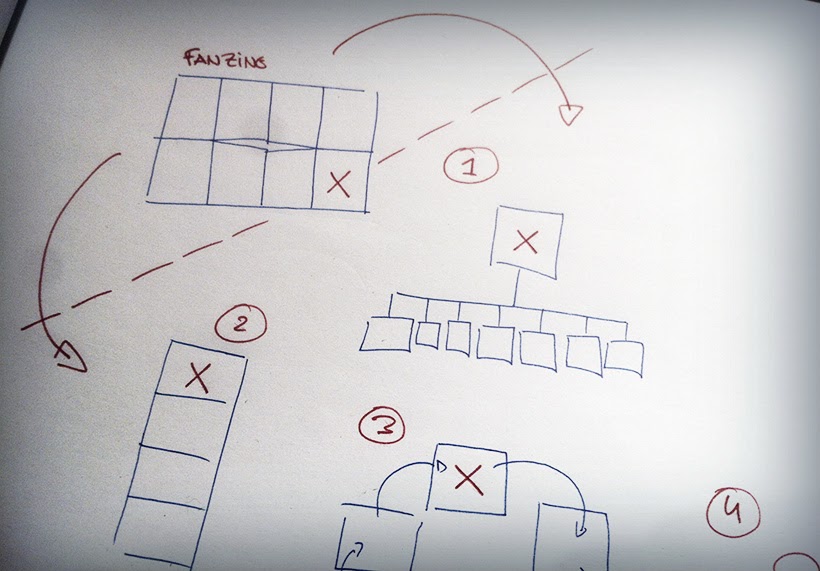 FANZINE
X
1
X
2
X
3
X
4